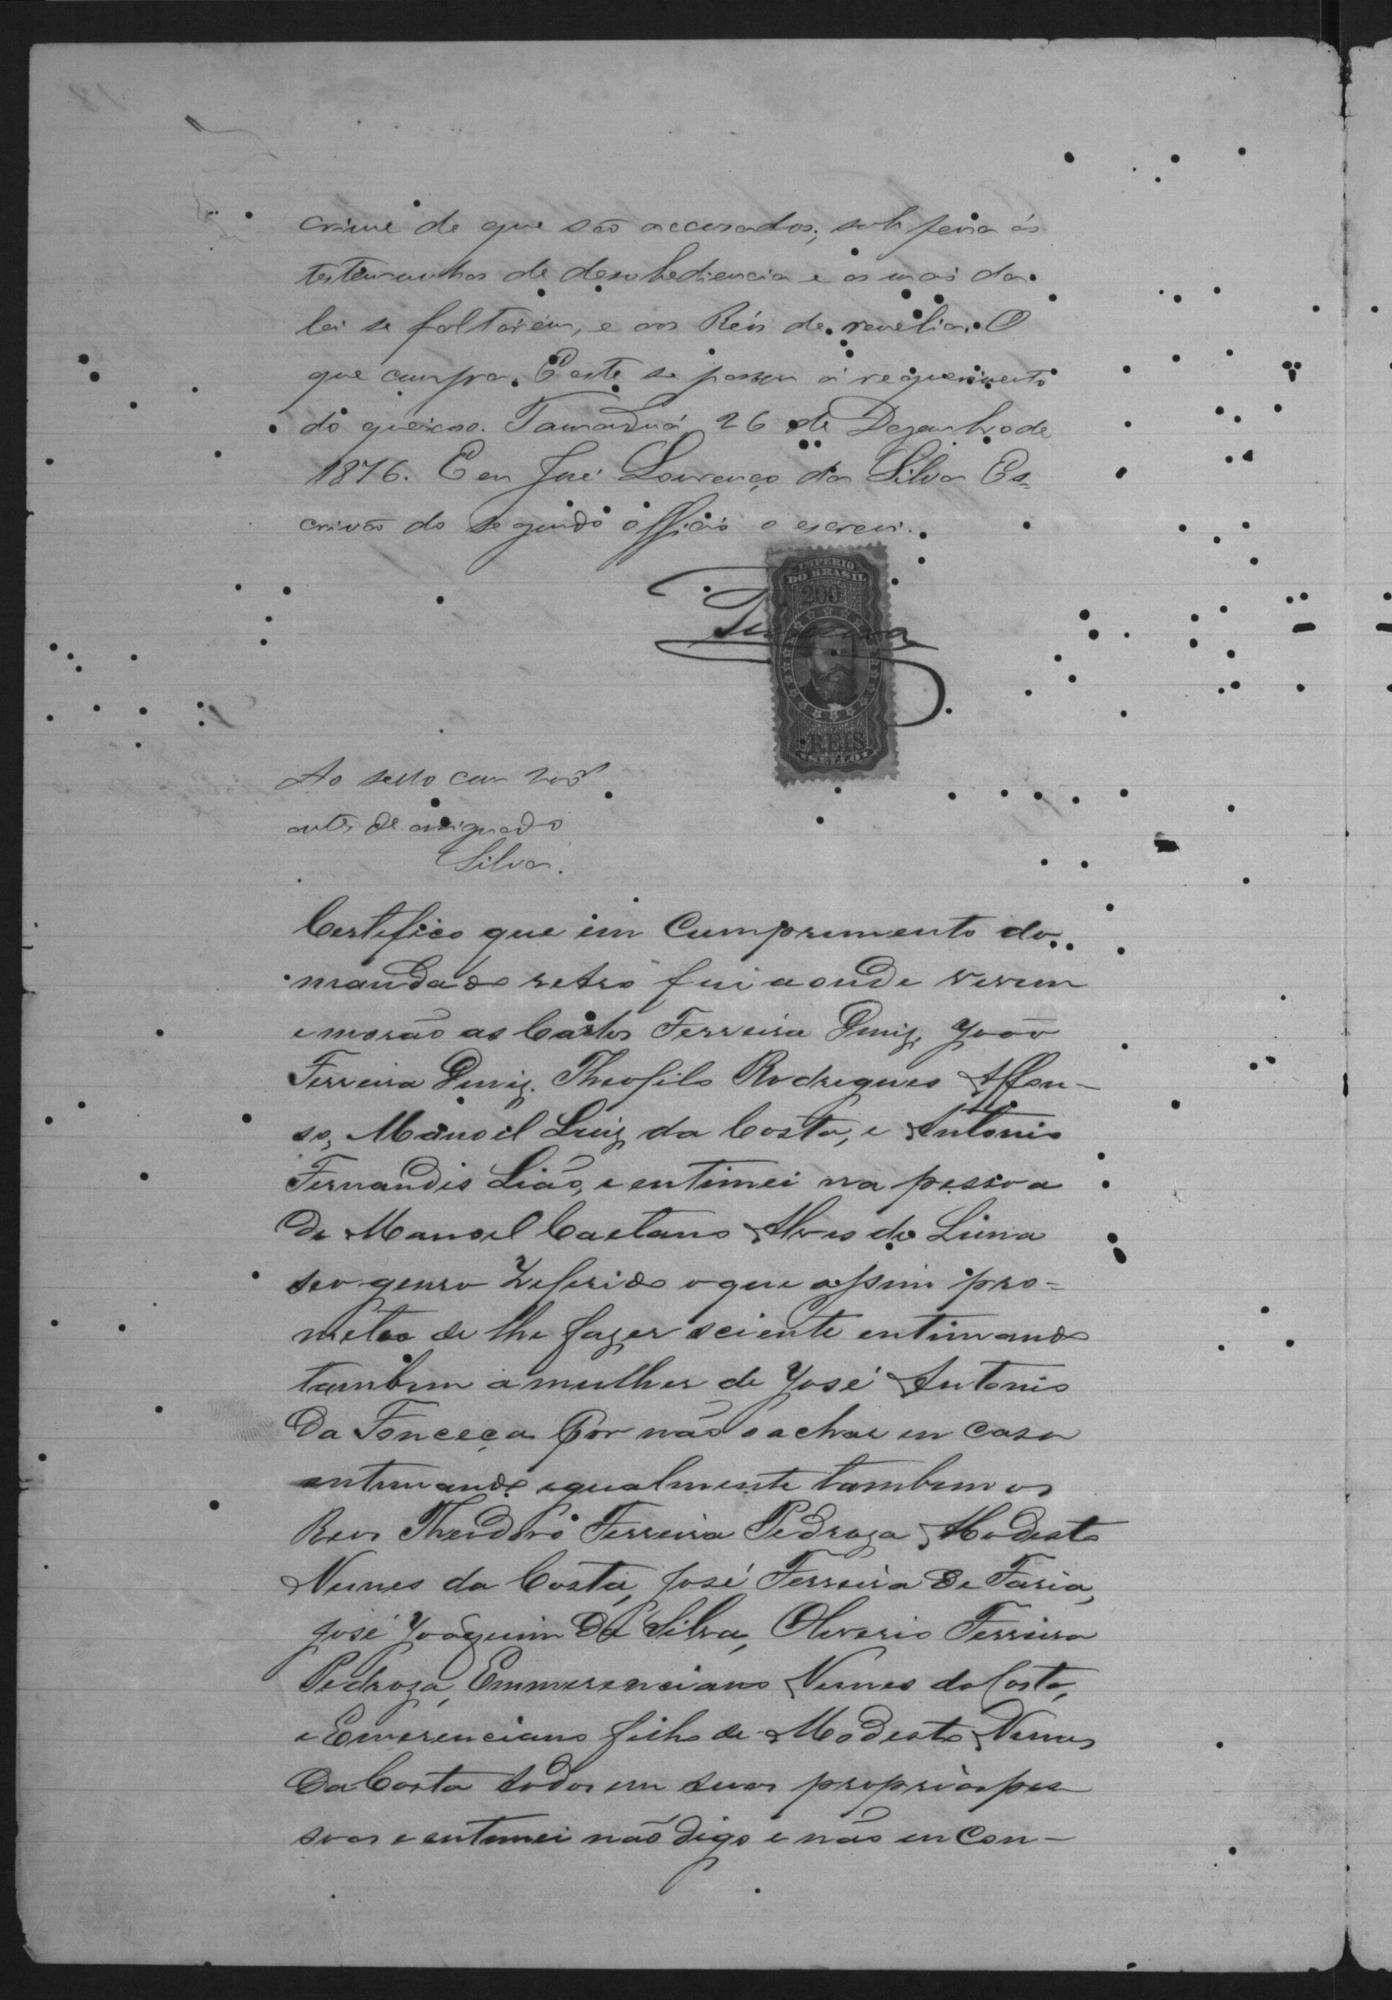 crime de que são accusados, sob pena ás
testemunhas de desobediencia e as mais da
lei se faltarem, e aos Réos de revelia. O
que cumpra. E este se passou á requerimento
do queixoso. Tamanduá 26 de Dezembro de
1876. E eu José Lourenço da Silva Es-
crivão do segundo officio o escrevi.
IMPERIO
DO BRASIL
200
REIS
SELLO
Ao sello com 200rs
antes de assignado
Silva.
Certifico que im Cumprimento do
mandado retro fui aonde vivem
e morão as Carlos Ferreira Diniz, João
Ferreira Diniz. Theofilo Rodrigues Affon-
so, Manoel Luiz da Costa, e Antonio
Fernandis Lião, e entimei na pessoa
de Manoel Caetano Alves de Lima
seo genro Zeferido o que assim pro-
meteo de lhe fazer sciente entimando
tambem a mulher de José Antonio
Da Fonceca por não o achar em casa
entimando egualmente tambem os
Reos Theodoro Ferreira Pedroza, Modesto
Nunes da Costa, José Ferreira De Faria,
José Joaquim Da Silva, Oliverio Ferreira
Pedroza, Emmerenciano Nunes da Costa,
e Emerenciano filho de Modesto Nunes
Da Costa todos em suas proprias pes
soas e entimei não digo e não encon-